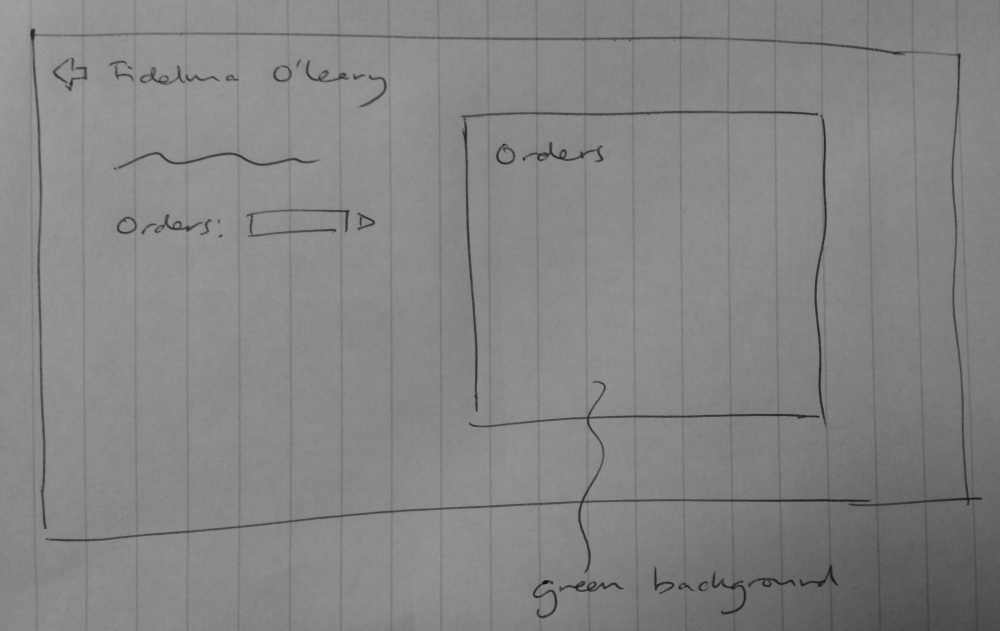 Fidelma O'Leary
Orders:
Orders
green background